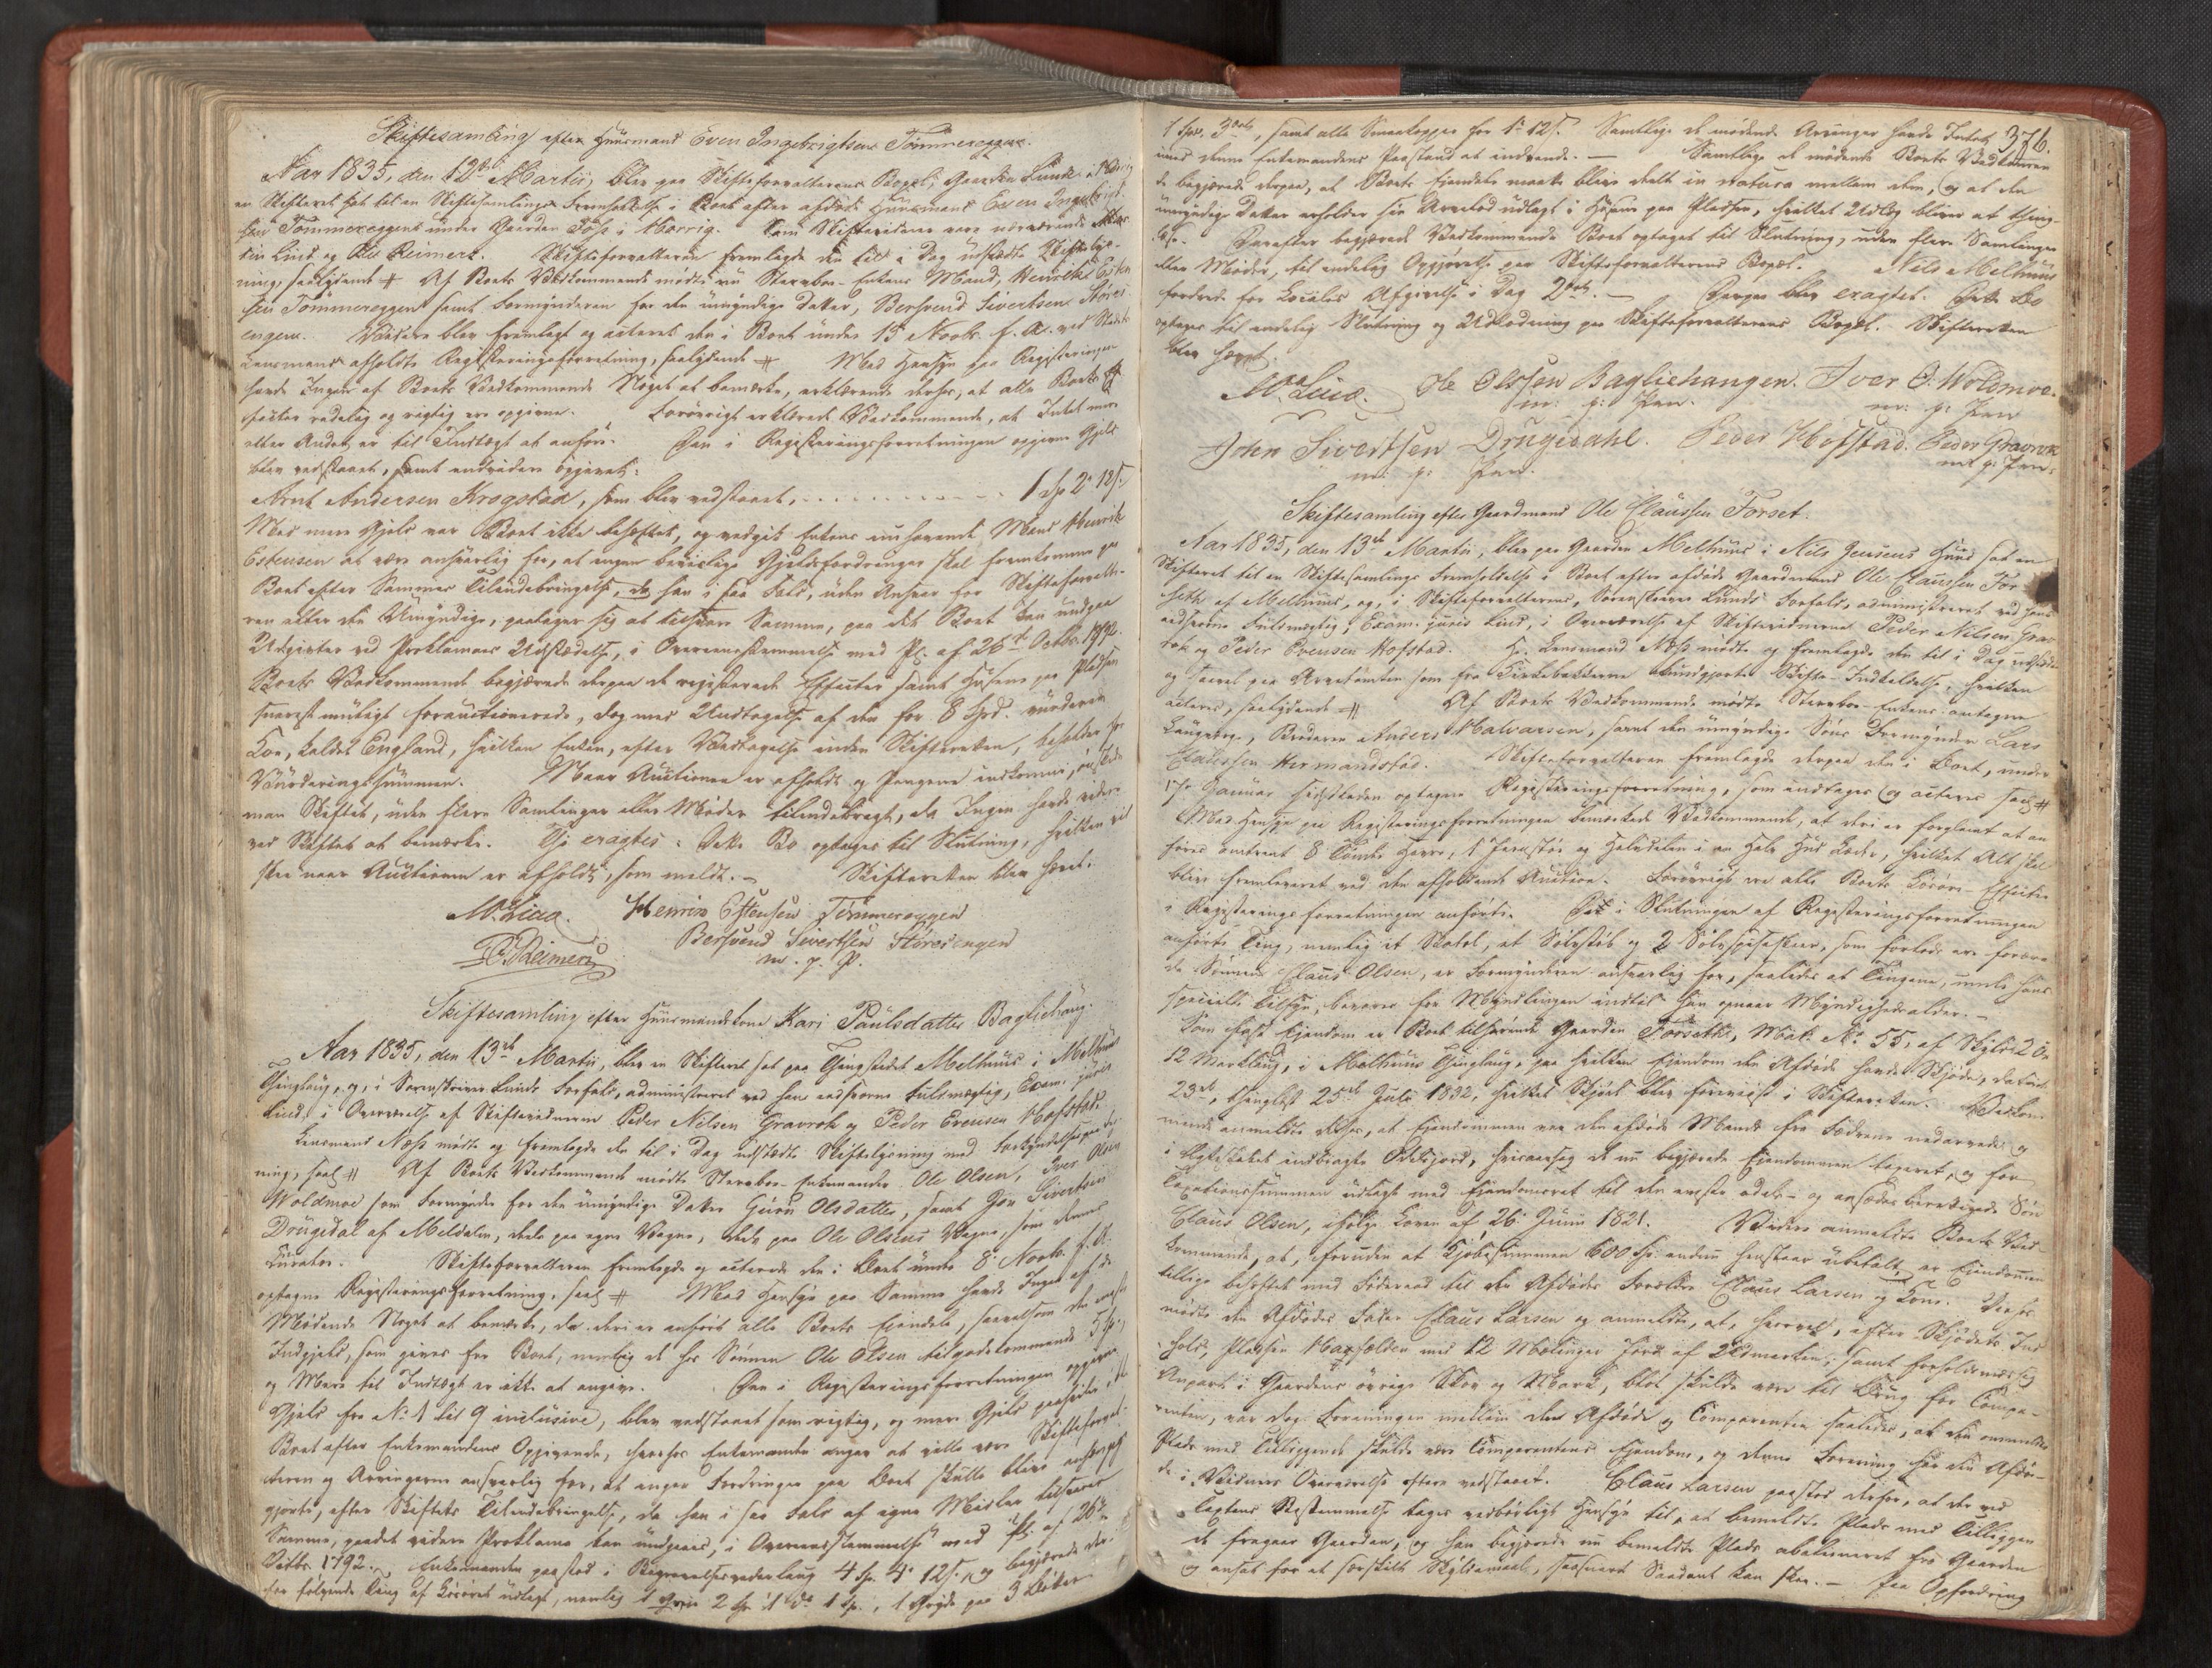 Skiftesamling efter Huusmand Even Ingebrigtsen Tömmereggen.
Aar 1835, den 12te Martii, blev paa Skifteforvalterens Bopæl, Gaarden Lunde i
en Skifteret sat til en Skiftesamlings Fremholdelse i Boet efter afdöde Huusmand Even Ingebrigt-
sen Tömmereggen under Gaarden i Horrig. Som Skiftevidner vare nærværende
Lind og Reimers. Skifteforvalteren fremlagde den til i Dag udstædte Skiftelys-
ning, saalydende # Af Boets Vedkommende mödte nu Stervboe-Enkens Mand, Henrik Esten-
sen Tömmereggen samt Formynderen for den umyndige Datter, Berhsvend Sivertsen Störes-
engen. Videre blev fremlagt og acteret den i Boet under 15 Novbr. f. A. ved Stedets
Lensmand afholdte Registreringsforretning, saalydende # Med Hensyn paa Registeringen
havde Ingen af Boets Vedkommende Noget at bemærke, erklærende derhos, at alle Boets Ef-
fecter redelig og rigtig ere opgivne. Forövrigt erklærede Vedkommende, at Intet mere
eller Andet er til Indtægt at anföre. Den i Registeringsforretningen opgivne Gjeld
blev vedstaaet, samt endvidere opgivet:
Arnt Andersen Krogstad, som blev vedstaaet, . . . . . . . . . 1 Sp 2 " 12 s.
Med mere Gjeld var Boet ikke behæftet, og vedgik Enkens nuhavende Mand Henrik
Estensen at være ansvarlig for, at ingen beviislige Gjeldsfordringer skal fremkomme paa
Boet efter Sammes Tilendebringelse, da han i saa Fald, uden Ansvar for Skifteforvalte-
ren eller de Umyndige, paatager sig at tilsvare Samme, paa det Boet kan undgaae
Udgifter ved Proclamas Udstædelse, i Overeensstemmelse med Pl. af 26de Octbr. 1792.
Boets Vedkommende begjærede derpaa de registerede Effecter samt Husene paa Pladsen
snarest muligt forauctionerede, dog med Undtagelse af den for 8 Spd. vurderede
Koe, kaldet England, hvilken Enken, efter Vedtagelse inden Skifteretten, beholder for
Vurderingssummen. Naar Auctionen er afholdt og Pengene indkomne, önskede
man Skiftet, uden flere Samlinger eller Möder tilendebragt, da Ingen havde videre
ved Skiftet at bemærke. Thi eragtes: Dette Bo optages til Slutning, hvilken vil
skee naar Auctionen er afholdt, som meldt. – Skifteretten blev hævet.
M. Lind. Henrik Estensen Tömmereggen
Reimers Berhsvend Sivertsen Störesengen
m. p. P.
Skiftesamling efter Huusmandskone Kari Paulsdatter Bagliehaug.
Aar 1835, den 13de Martii, blev en Skifteret sat paa Thingstedet Melhuus i Melhuus
Thinglaug, og, i Sorenskriver Lunds Forfald, administreret ved hans edsvorne Fuldmægtig, Exam. juris
Lind, i Overværelse af Skiftevidnerne Peder Nilsen Gravrok og Peder Evensen Hofstad.
Lensmand Næss mödte og fremlagde den til i Dag udstædte Skiftelysning med Forkyndelsespaateg-
ning, saal # Af Boets Vedkommende mödte Stervboe-Enkemanden Ole Olsen, Iver Olsen
Woldmoe som Formynder for den umyndige Datter Guru Olsdatter, samt Jon Sivertsen
Drugedal af Meldalen, deels paa egne Vegne, deels paa Ole Olsens Vegne, som dennes
Curator. Skifteforvalteren fremlagde og acterede den i Boet under 8 Novbr. f. A.
optagne Registeringsforretning, saal # Med Hensyn paa Samme havde Ingen af de
Mödende Noget at bemærke, da deri er anfört alle Boets Eiendele, saavelsom den
Indgjeld, som gives for Boet, nemlig det hos Sönnen Ole Olsen tilgodekommende 5 Sp.,
og Mere til Indtægt er ikke at angive. Den i Registeringsforretningen opgivne
Gjeld fra No. 1 til 9 inclusive, blev vedstaaet som rigtig, og mere Gjeld paahviler ikke
Boet efter Enkemandens Opgivende, hvorfor Enkemanden angav at ville være Skifteforval-
teren og Arvingerne ansvarlig for, at ingen Fordringer paa Boet skulle blive anhængig-
gjorte, efter Skiftets Tilendebringelse, da han i saa Fald af egne Midler tilsvarer
Samme, paadet videre Proklama kan undgaaes, i Overeensstemmelse med Pl. af 26de
Octbr. 1792. Enkemanden paastod i Begravelsesvederlaug 4 Sp. 4 " 12 s., og begjærede der-
for fölgende Ting af Lösöret udlagt, nemlig 1 2 Sp. 1 do 1 Sp., 1 Gryde paa 3
376.
1 Spd. 3 ort, samt alle Smaakopper for 1 " 12 s. Samtlige de mödende Arvinger havde Intet
imod denne Enkemandens Paastand at indvende. – Samtlige de mödende Boets Vedkommen-
de begjærede derpaa, at Boets Eiendele maatte blive deelt in natura mellem dem, og at den
umyndige Datter erholder sin Arvelod udlagt i Husene paa Pladsen, hvilket Udlæg bliver at thing-
læse. Derefter begjærede Vedkommende Boet optaget til Slutning, uden flere Samlinger
eller Möder, til endelig Opgjörelse paa Skifteforvalterens Bopæl. Nils Melhuus
fordrede for Locales Afgivelse i Dag 2 ort. – Derpaa blev eragtet: Dette Bo
optages til endelig Slutning og Udlodning paa Skifteforvalterens Bopæl. Skifteretten
blev hævet.
M. Lind. Ole Olssen Bagliehaugen. Iver O. Woldmoe.
m: p: Pen. m: p: Pen
John Sivertsen Drugedahl. Peder Hofstad. Peder Gravrok
m: p: Pen. m: p: Pen:
Skiftesamling efter Gaardmand Ole Claussen Forset.
Aar 1835, den 13de Martii, blev paa Gaarden Melhuus i Nils Jensens Huus sat en
Skifteret til en Skiftesamlings Fremholdelse i Boet efter afdöde Gaardmand Ole Claussen For-
seth af Melhuus, og, i Skifteforvalterens, Sorenskriver Lunds Forfald, administreret ved hans
edsvorne Fuldmægtig, Exam. juris Lind, i Overværelse af Skiftevidnerne Peder Nilsen Grav-
rok og Peder Evensen Hofstad. Hr. Lensmand Næss mödte og fremlagde den til i Dag udstædte
og saavel paa Arvetomten som fra Kirkebakkerne kundgjorte Skifte-Indkaldelse, hvilken
acteres, saalydende # Af Boets Vedkommende mödte Stervboe-Enkens antagne
Laugværge, Broderen Anders Halvarsen, samt den umyndige Söns Formynder Lars
Claussen Hermandstad. Skifteforvalteren fremlagde derpaa den i Boet, under
17de Januar sidstleden optagne Registreringsforretning, som indtages og acteres saal #
Med Hensyn paa Registeringsforretningen bemærkede Vedkommende, at deri er forglemt at an-
föres omtrent 8 Tönder Havre, 1 Jernstör og Halvdelen i en halv Hud Læder, hvilket Alt skal
blive fremleveret ved den afholdende Auction. Forövrigt ere alle Boets Lösöre-Effecter
i Registeringsforretningen anförte. Det i Slutningen af Registeringsforretningen
anförte Ting, nemlig et Skatol, et Sölvstöb og 2 Sölvspiseskeer, som forlods ere foræret
de Sönnen Claus Olsen, er Formynderen ansvarlig for, saaledes at Tingene, under hans
specielle Tilsyn, bevares for Myndlingen indtil han opnaaer Myndighedsalder. –
Som fast Eiendom er Boet tilhörende Gaarden Forseth, Mat. No. 55, af Skyld 2 Ör
12 Marklaug, i Melhuus Thinglaug, paa hvilken Eiendom den Afdöde havde Skjöde, dateret
23de, thinglæst 25de Juli 1832, hvilket Skjöde blev foreviist i Skifteretten. Vedkom-
mende anmeldte derhos, at Eiendommen var den afdöde Mands fra Fædrene nedarvede og
i Ægteskabet indbragte Odelsjord, hvorfor de nu begjærede Eiendommen taxeret, og for
Taxationssummen udlagt med Eiendomsret til den eneste odels- og aasædesberettigede Sön
Claus Olsen, ifölge Loven af 26 Juni 1821. Videre anmeldte Boets Ved-
kommende, at, foruden at Kjöbesummen 600 Sp. endnu henstaaer ubetalt, er Eiendommen
tillige behæftet med Föderaad til den Afdödes Forældre Claus Larsen og Kone. Derhos
mödte den Afdödes Fader Claus Larsen og anmeldte, at, hvorvel, efter Skjödets Ind-
hold, Pladsen Haxfælden med 12 Mælinger Jord af Udmarken, samt forholdsmæssig
Anpart i Gaardens övrige Skov og Mark, blot skulde være til Brug for Compa-
renten, var dog Foreningen mellem den Afdöde og Comparenten saaledes, at den ommeldte
Plads med Tilliggende skulde være Comparentens Eiendom, og denne Forening har den Afdö-
de i Vidners Overværelse oftere vedstaaet. Claus Larsen paastod derfor, at der ved
Taxtens Bestemmelse tages vedbörligt Hensyn til, at bemeldte Plads med Tilliggen-
de fragaaer Gaarden, og han begjærede nu bemeldte Plads abaleneret fra Gaarden
og ansat for et særskilt Skyldmaal, saasnart Saadant kan skee. – Paa Opfordring